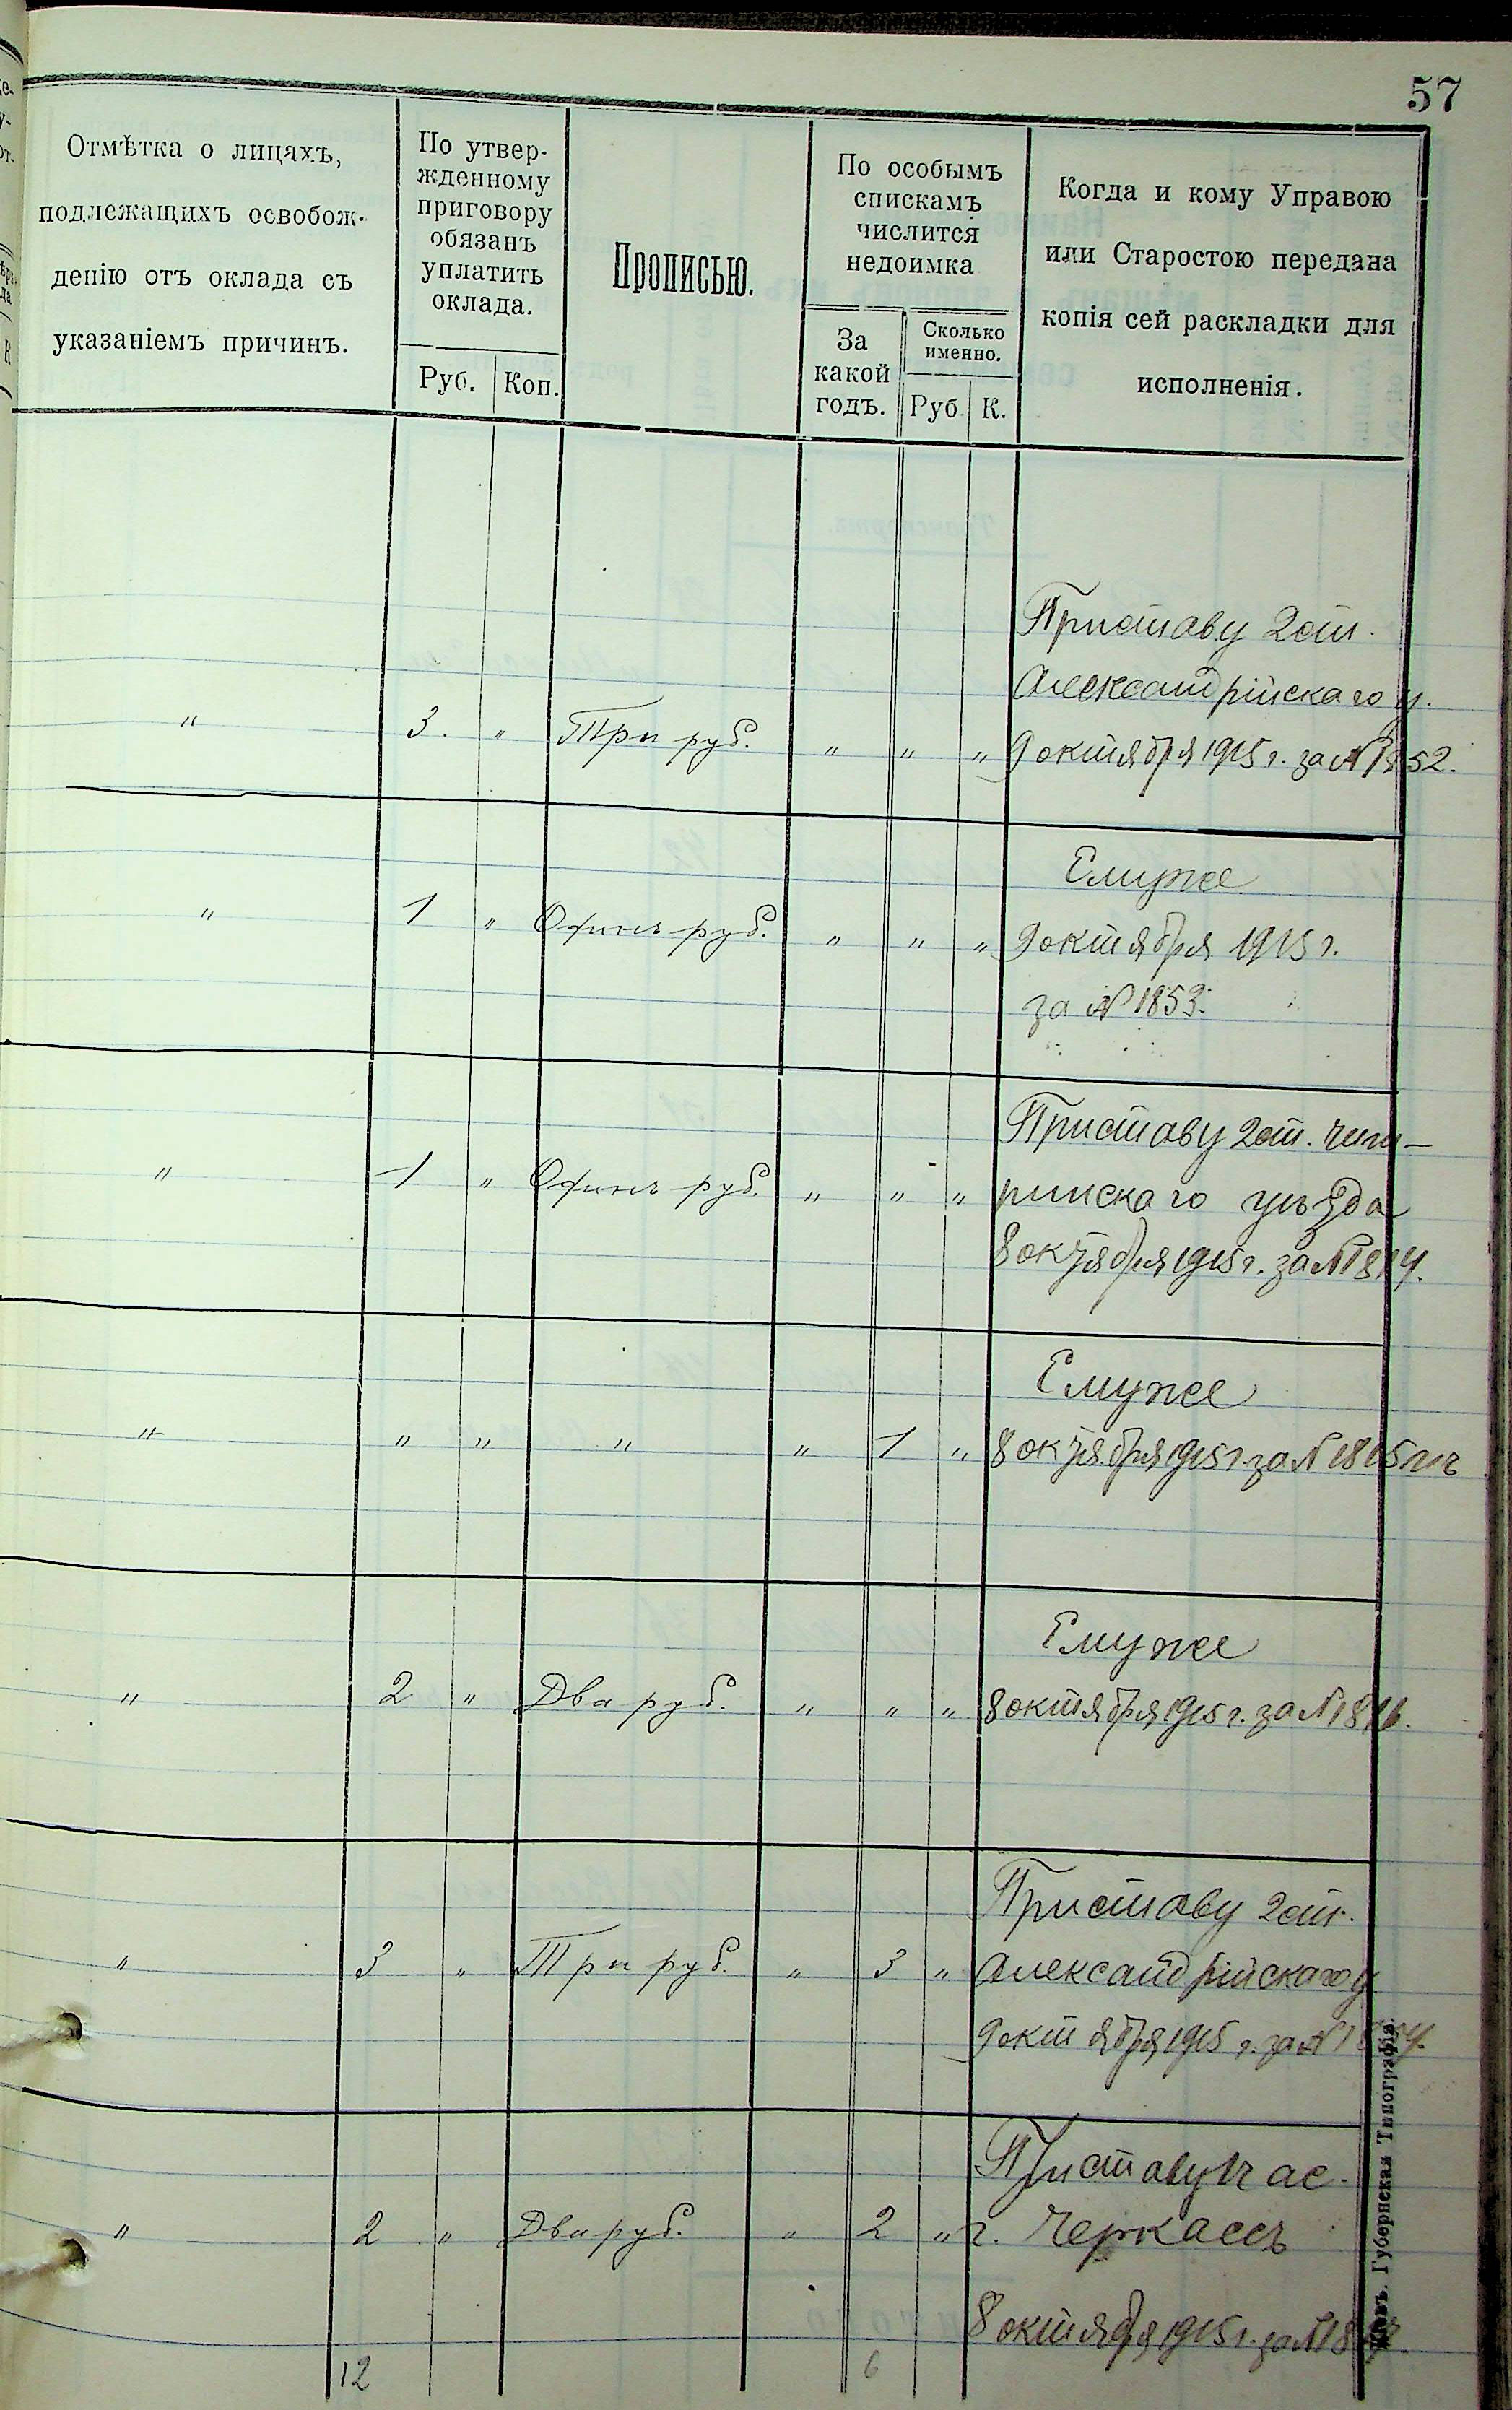 57
Отмѣтка о лицахъ,
подлежащихъ освобож-
денію отъ оклада съ
указаніемъ причинъ.
По утвер-
жденному
приговору
обязанъ
уплатить
оклада.
Руб. Коп.
Прописью.
По особымъ
спискамъ
числится
недоимка
За
какой
годъ.
Сколько
именно.
Руб К.
Когда и кому Управою
или Старостою передана
копія сей раскладки для
исполненія.
Приставу 2 ст.
Александрійскаго у.
" 3. " Три руб. " " " 9 октября 1915 г. за № 1852.
Ему же
" 1 " Одинъ руб. " " " 9 октября 1915 г.
за № 1853.
Приставу 2 ст. Чиги-
" 1 " Одинъ руб. " " " ринскаго уѣзда
8 октября 1915 г. за № 1814.
Ему же
" " " " " 1 " 8 октября 1915 г. за № 1815
Ему же
" 2 " Два руб. " " " 8 октября 1915 г. за № 1816.
Приставу 2 ст.
" 3 " Три руб. " 3 " Александрійскаго у.
9 октября 1915 г. за №
Приставу час.
" 2 " Два руб. " 2 " г. Черкассъ
8 октября 1915 г. за №
12 6
Губернская Типографія.